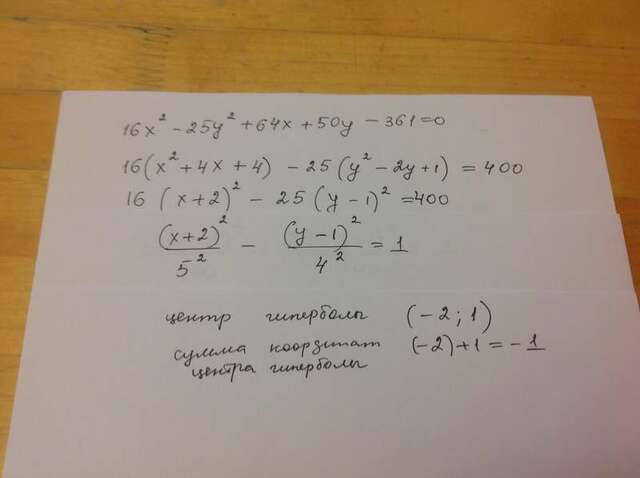 16x² - 25y² + 64x + 50y - 361 = 0
16(x² + 4x + 4) - 25(y² - 2y + 1) = 400
16 (x + 2)² - 25 (y - 1)² = 400
(x + 2)² / 5² - (y - 1)² / 4² = 1
центр гиперболы (-2; 1)
сумма координат (-2) + 1 = -1
центра гиперболы